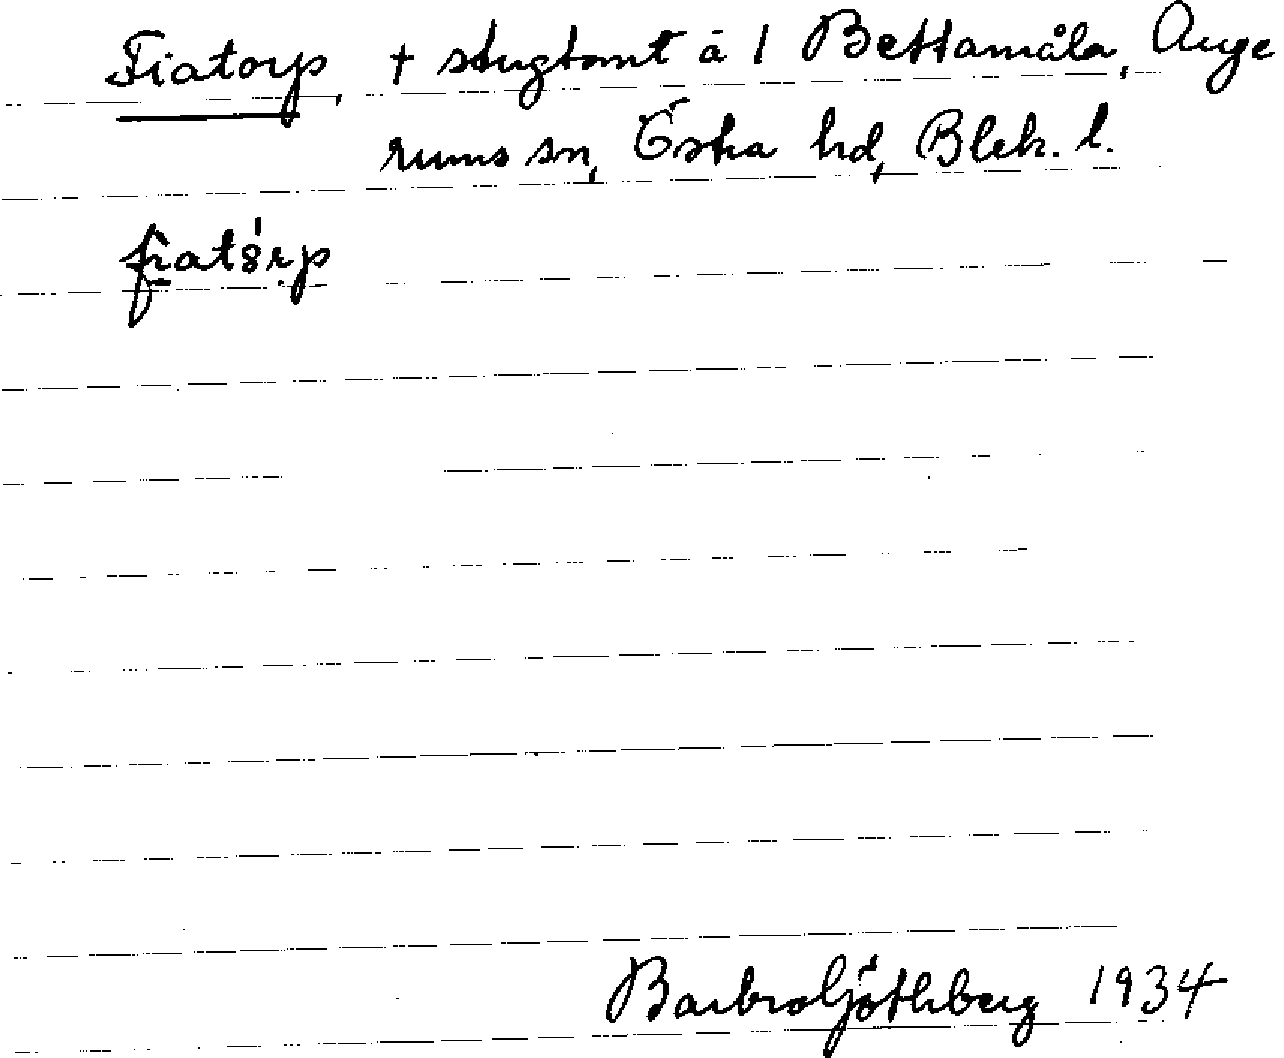 Fiatorp, † stugtomt å 1 Bettamåla, Auge
rums sn, Östra hd, Blek. l.
fiatórp
Barbro Göthberg 1934